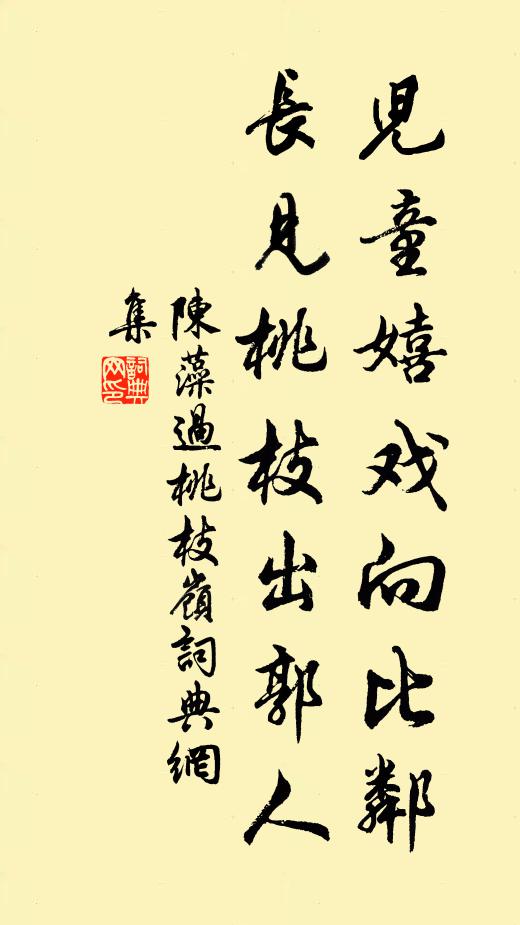 兒童嬉戏向比鄰
長見桃枝出郭人
陳藻過桃枝嶺詞典網
集
詞典
网印